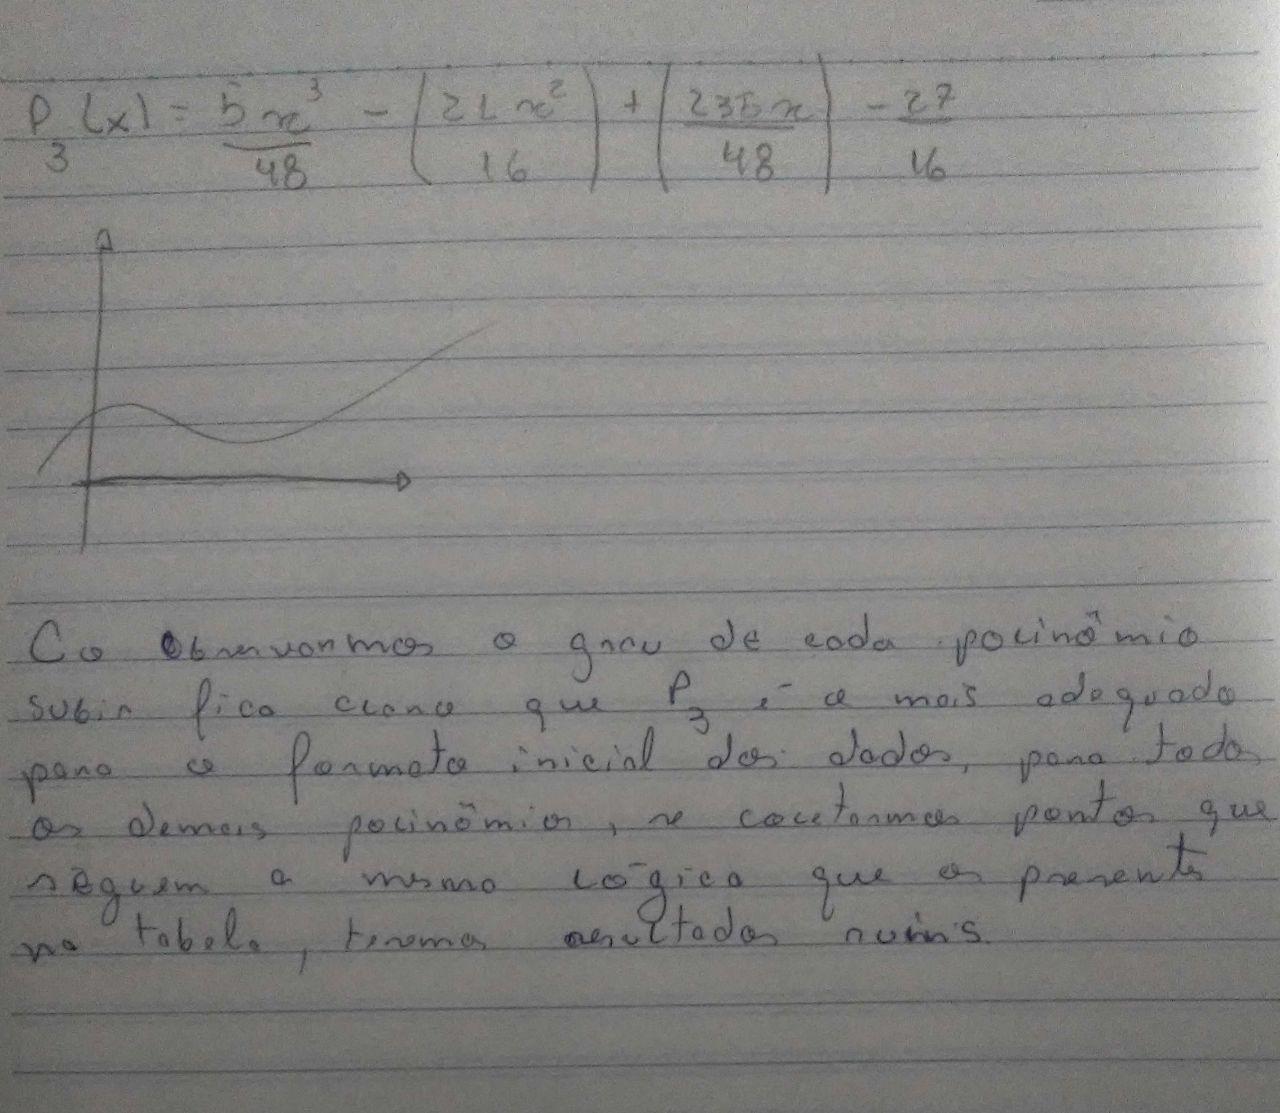 P₃(x) = 5x³/48 - (21x²/16) + (235x/48) - 27/16
Co Observarmos o grau de cada polinômio
subir fica claro que P₃ é o mais adequado
para o formato inicial dos dados, para todos
os demais polinômios, se coletarmos pontos que
seguem a mesma lógica que os presents
na tabela, teremos resultados ruins.